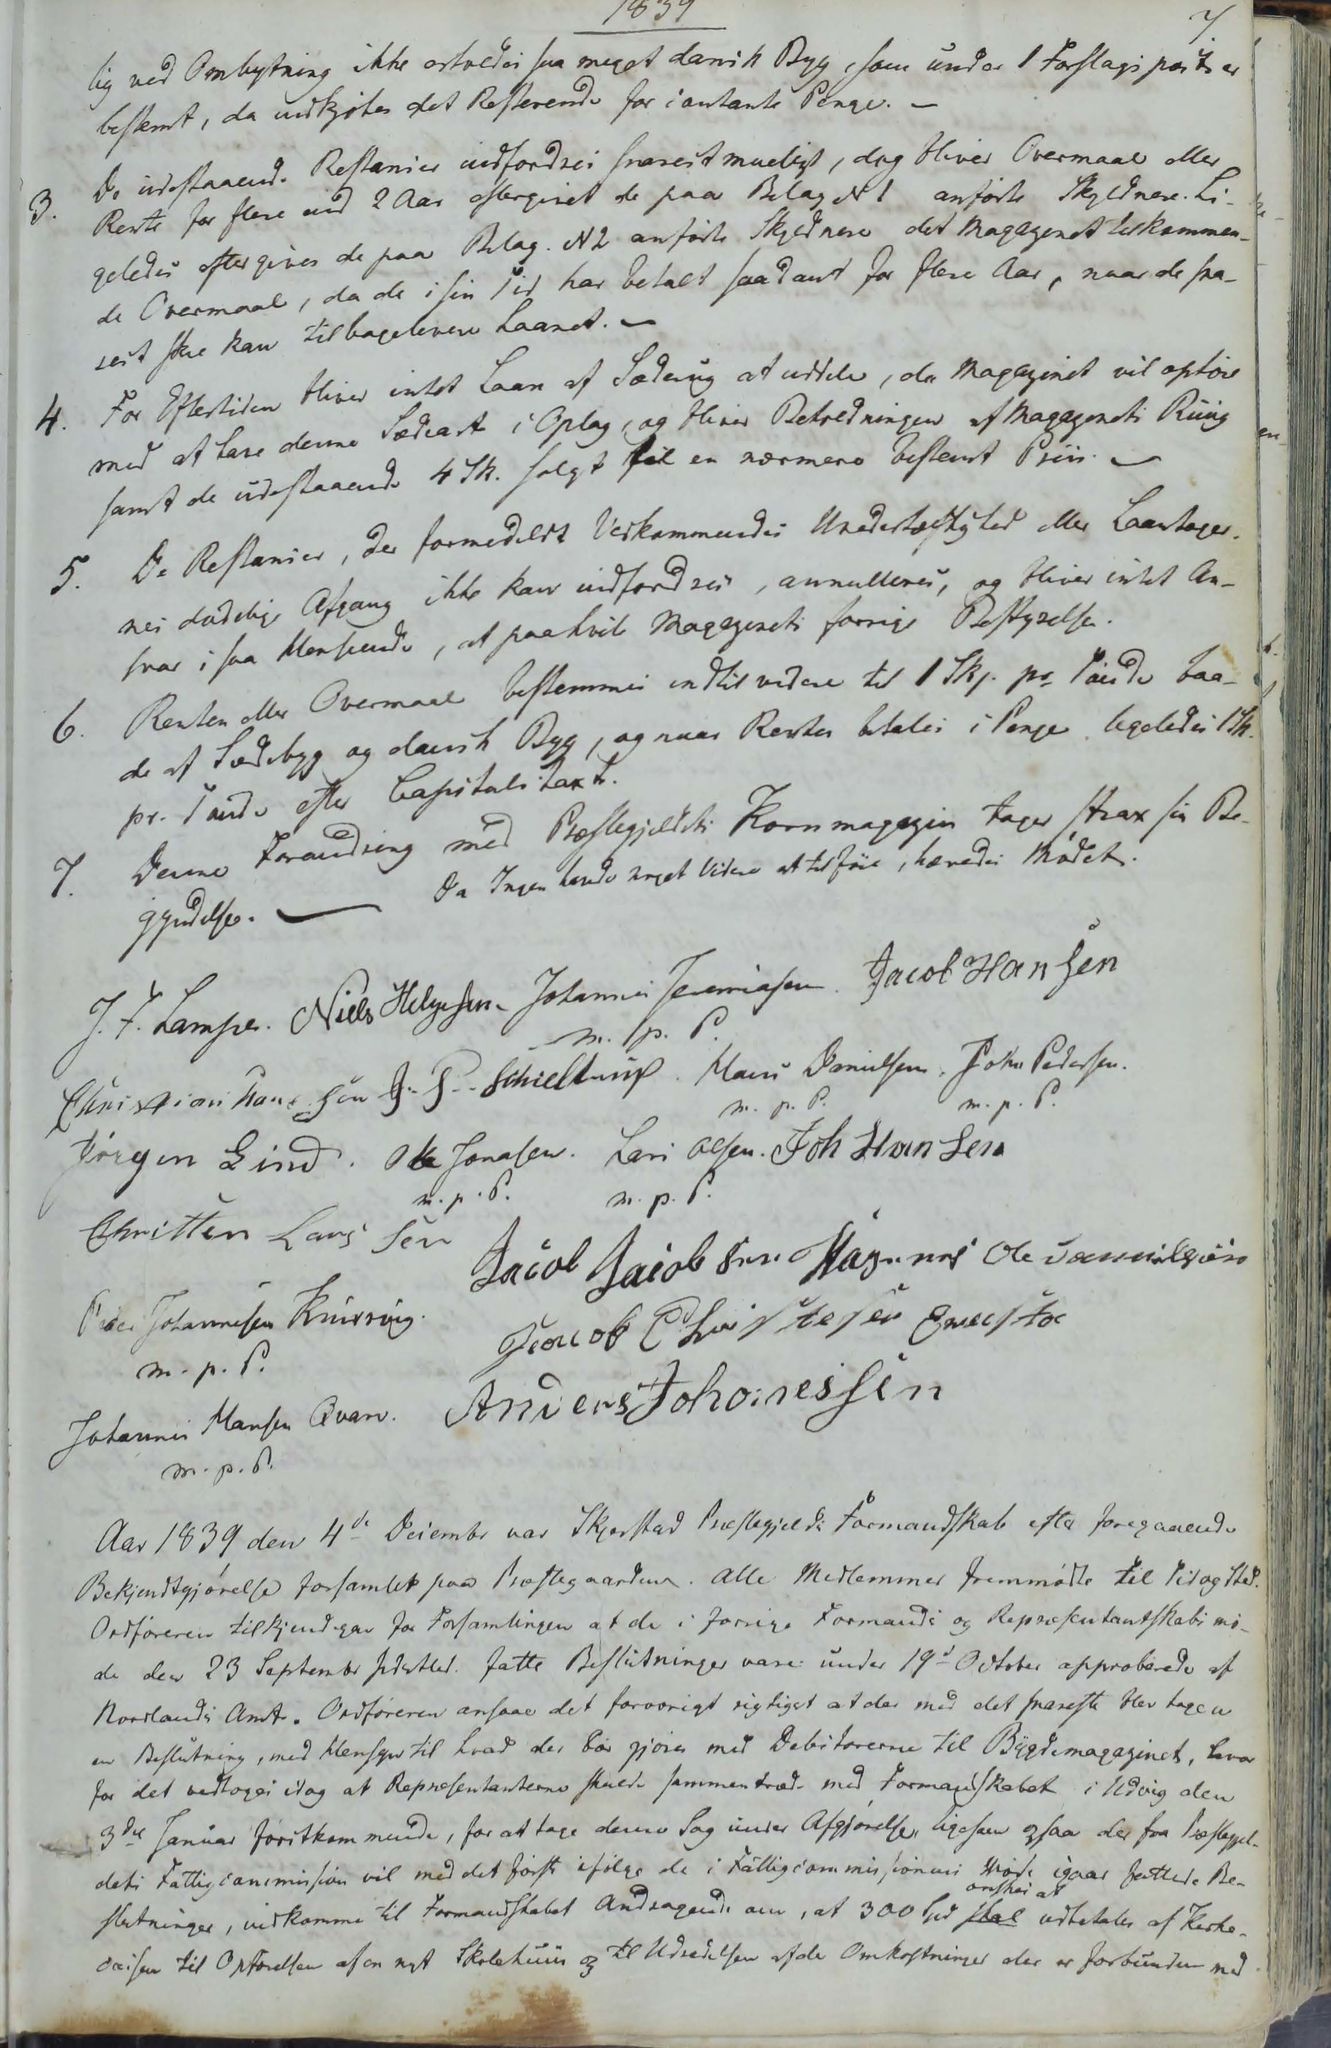 1839
7.
lig ved Ombytning ikke erholdes saa meget dansk Byg, som under 1 Forslags post er
bestemt, da indkjøbes det Resterende for contante Penge. —
3. De udestaaende Restancer indfordres snarest mueligt, dog bliver Overmaal eller
Rente for flere end 2 Aar eftergivet de paa Bilag N 1 anførte Skyldnere. Li-
geledes eftergives de paa Bilag. N 2 anførte Skyldnere det Magazinet tilkommen-
de Overmaal, da de i sin Tid har betalt saadant for flere Aar, naar de sna-
rest skee kan tilbagelevere Laanet. —
4. For Eftertiden bliver intet Laan af Sæderug at uddele, da Magazinet vil ophøre
med at have denne Sædeart i Oplag, og bliver Beholdningen af Magazinets Ruug
samt de udestaaende 4 Sk. solgt til en nærmere bestemt Priis. —
5. De Restancer, der formedelst Vedkommendes Uvederhæftighed eller Laantager-
nes dødelige Afgang ikke kan indfordres, annulleres, og bliver intet An-
svar i saa Henseende, at paahvile Magazinets forrige Bestyrelse.
6. Renten eller Overmaal bestemmes indtil videre til 1 Skj. pr Tønde baa-
de af Sædebyg og dansk Byg, og naar Renten betales i Penge ligeledes 1 Sk.
pr. Tønde efter Capitalstaxt.
7. Denne Forandring med Præstegjeldets Kornmagazin tager strax sin Be-
gyndelse. — Da Ingen havde noget videre at tilføie, hævedes Mødet.
J. F. Lampe. Niels Helgesen. Johannes Jeremiasen. Jacob Hansen
m. p. P.
Christian Hansen J. P. Schjelderup. Hans Danielsen. John Pedersen.
m. p. P. m. p. P.
Jørgen Lind. Ole Jonasen. Lars Olsen. Joh Hansen
m. p. P. m. p. P.
Christen Lars sen Jacob Jacobsen Hagenæs Ole Danielsen
Peder Johannesen Knivring. Jacob Christesen
m. p. P.
Johannes Hansen Qvarv. Anders Johanessen
m. p. P.
Aar 1839 den 4de Decembr var Skjerstad Præstegjelds Formandskab efter foregaaende
Bekjendtgjørelse forsamlet paa Præstegaarden. Alle Medlemmer fremmødte til Tid og Sted.
Ordføreren tilkjendegav for Forsamlingen at de i forrige Formands og Repræsentantskabs mø-
de den 23 Septembr sidstled. fatte Beslutninger vare under 19d October approberede af
Nordlands Amt. Ordføreren ansaae det forøvrigt rigtigst at der med det snareste blev tagen
en Beslutning, med Hensyn til hvad der bør gjøres med Debitorerne til Bygdemagazinet, hvor
for det vedtoges idag at Repræsentanterne skulde sammentræde med Formandskabet i Udvig den
3die Januar førstkommende, for at tage denne Sag under Afgjørelse, ligesom ogsaa der fra Præstegjel-
dets Fattigcommission vil med det første ifølge de i Fattigcommissionens Møde igaar fattede Be-
slutninger, indkomme til Formandskabet Andragende om, at 300 Spd skal ønskes at udbetales af Kirke-
cassen til Opførelsen af en nyt Skolehuus og til Udredelsen af de Omkostninger der er forbunden med